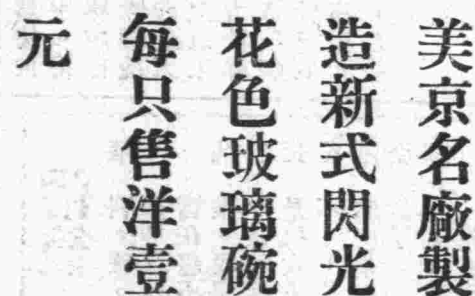 美京名廠製
造新式閃光
花色玻璃碗
每只售洋壹
元